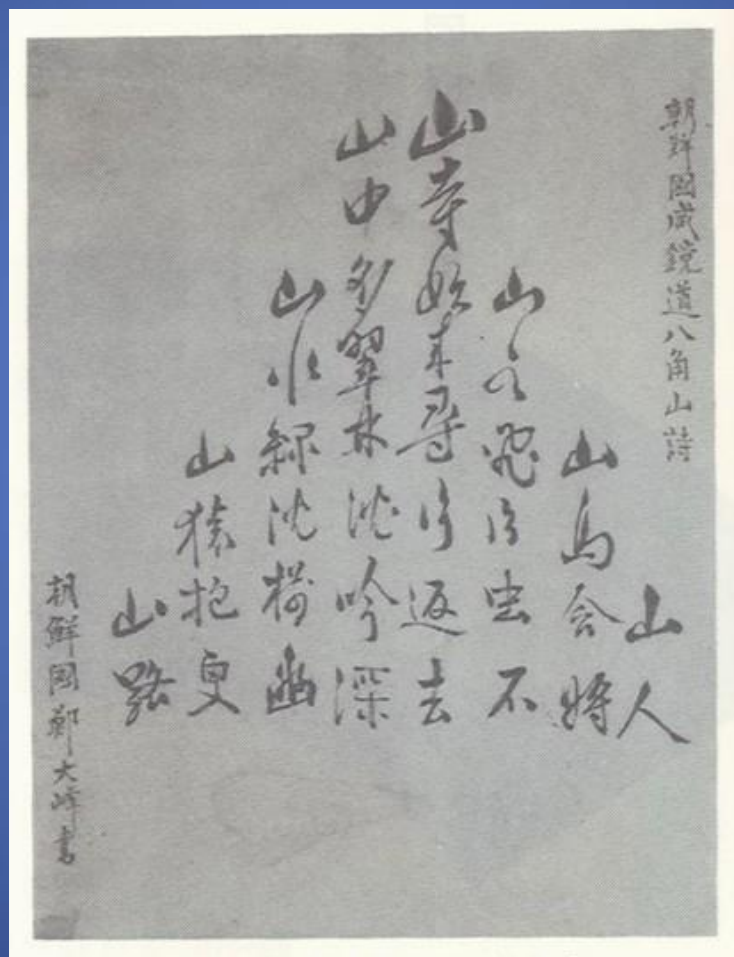 朝鮮國咸鏡道八角山詩
山人
山鳥会将
山飛虫不
山寺始来尋返去
山中多翠林沈吟深
山水緑沈幽
山猿抱更
山路
朝鮮國鄭大峰書